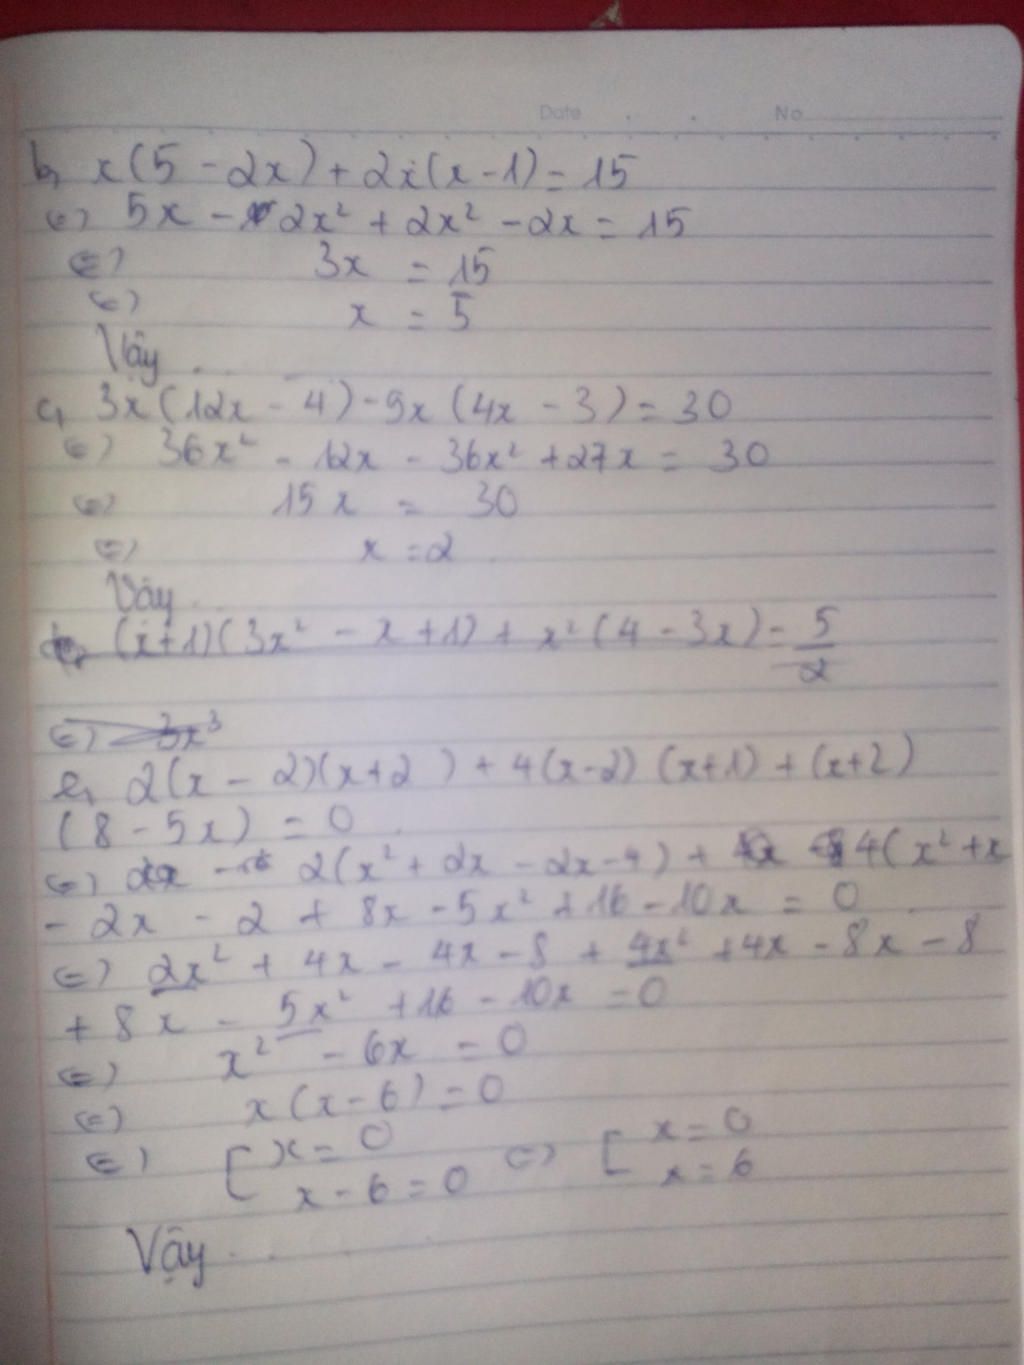 Date . . No
b, x(5 - 2x) + 2x(x - 1) = 15
<=> 5x - 2x² + 2x² - 2x = 15
<=> 3x = 15
<=> x = 5
Vậy ...
c, 3x(12x - 4) - 9x(4x - 3) = 30
<=> 36x² - 12x - 36x² + 27x = 30
<=> 15x = 30
<=> x = 2
Vậy ...
(x+1)(3x² - x + 1) + x²(4 - 3x) = 5/2
<=> 3x³
e, 2(x - 2)(x+2) + 4(x-2)(x+1) + (x+2)
(8 - 5x) = 0
<=> 2(x² + 2x - 2x - 4) + 4(x² + x
- 2x - 2 + 8x - 5x² + 16 - 10x = 0
<=> 2x² + 4x - 4x - 8 + 4x² + 4x - 8x - 8
+ 8x - 5x² + 16 - 10x = 0
<=> x² - 6x = 0
<=> x(x - 6) = 0
<=> [ x = 0 <=> [ x = 0
x - 6 = 0 x = 6
Vậy ...